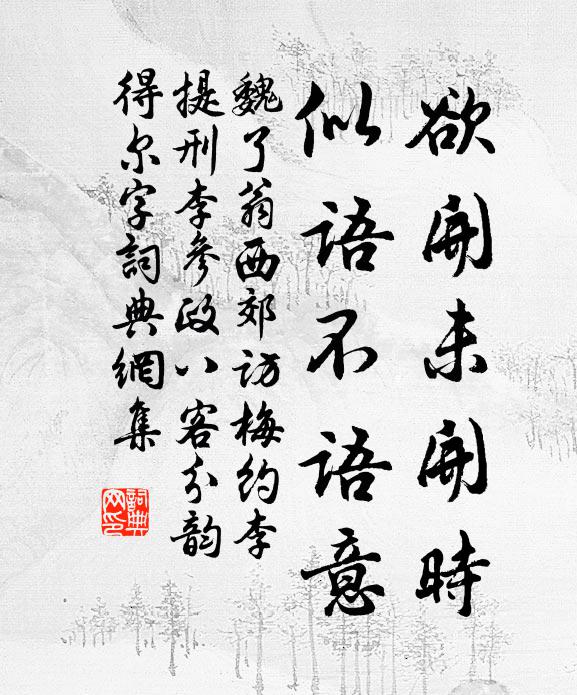 欲開未開時
似語不語意
魏了翁西郊访梅约李
提刑李參政八客分韵
得尔字詞典網集
詞典网印